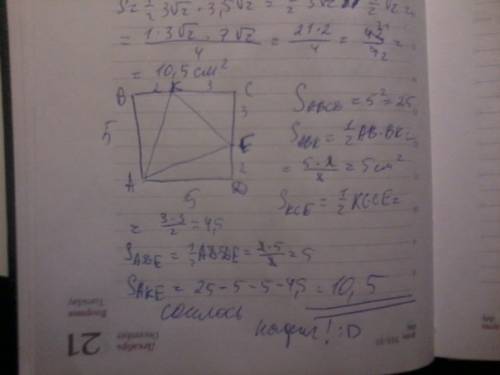 S = 1/2 3√2 · 3,5√2 =
= 1·3√2 · 7√2 / 4 = 21·2 / 4 =
= 10,5 см²
B 2 K 3 C
5
3
E
2
A 5 D
S_ABCD = 5² = 25
S_ABK = 1/2 AB·BK =
= 5·2 / 2 = 5 см²
S_KCE = 1/2 KC·CE =
= 3·3 / 2 = 4,5
S_ADE = 1/2 AD·DE = 2·5 / 2 = 5
S_AKE = 25 - 5 - 5 - 4,5 = 10,5
сошлось
нафиг! :D
21
Декабрь
December
Вторник
Tuesday